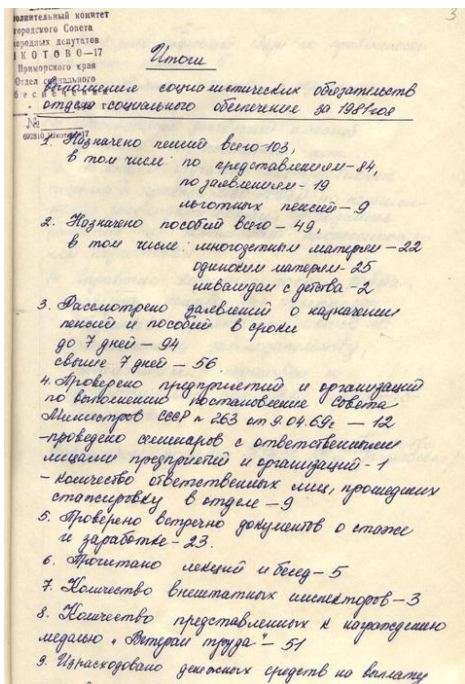 полнительный комитет
городского Совета
народных депутатов
ШКОТОВО—17
Приморского края
Отдел социального
обеспечения
№
3
Итоги
выполнения социалистических обязательств
отдела социального обеспечение за 1981 год
1. Назначено пенсий всего-103,
в том числе по представлениям-84,
по заявлениям-19
льготных пенсий-9
2. Назначено пособий всего-49,
в том числе многодетным матерям-22
одиноким матерям-25
инвалидам с детства-2
3. Рассмотрено заявлений о назначении
пенсий и пособий в сроки
до 7 дней-94
свыше 7 дней-56.
4. Проверено предприятий и организаций
по исполнению постановление Совета
Министров СССР № 263 от 9.04.69г — 12
-проведено семинаров с ответственными
лицами предприятий и организаций-1
- количество ответственных лиц, прошедших
стажировку в отделе-9
5. Проверено встречно документов о стаже
и заработке-23.
6. Прочитано лекций и бесед-5
7. Количество внештатных инспекторов-3
8. Количество представленных к награждению
медалью „Ветеран труда"-51
9. Израсходовано денежных средств на выплату